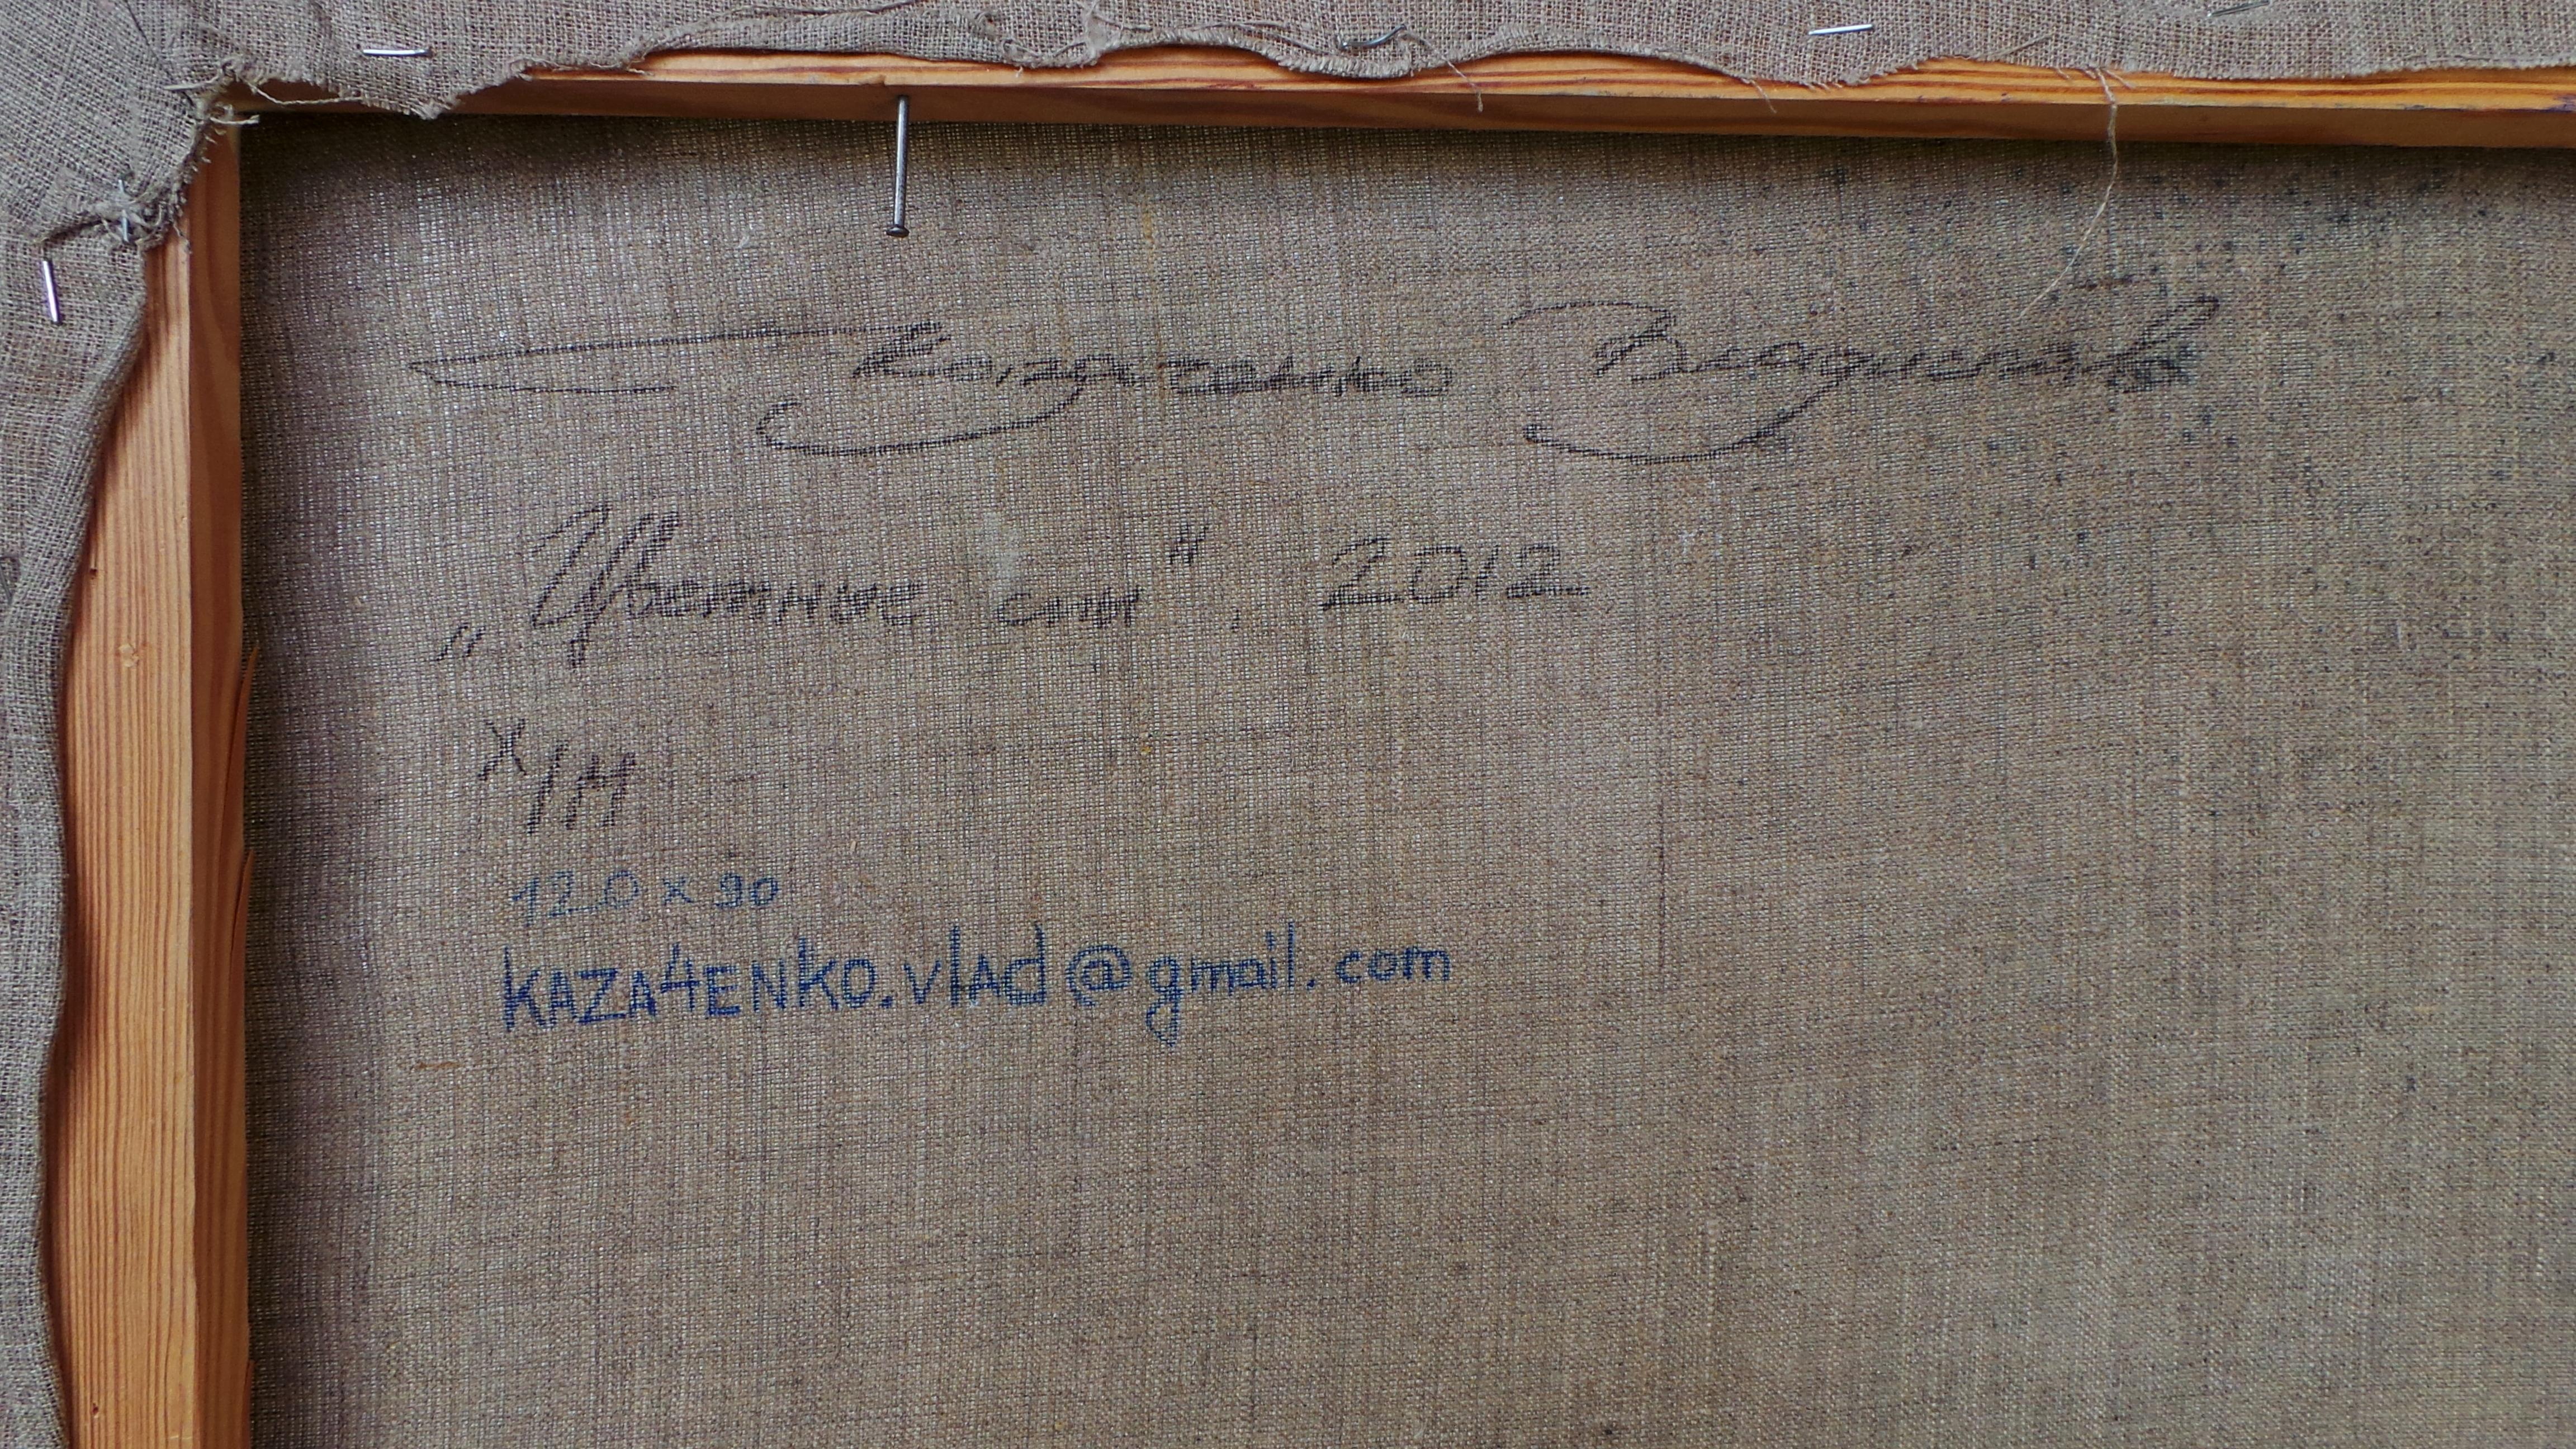 Казаченко Владислав
„Цветные сны", 2012
х/м
120 x 90
KAZA4ENKO.vlAd@gmail.com